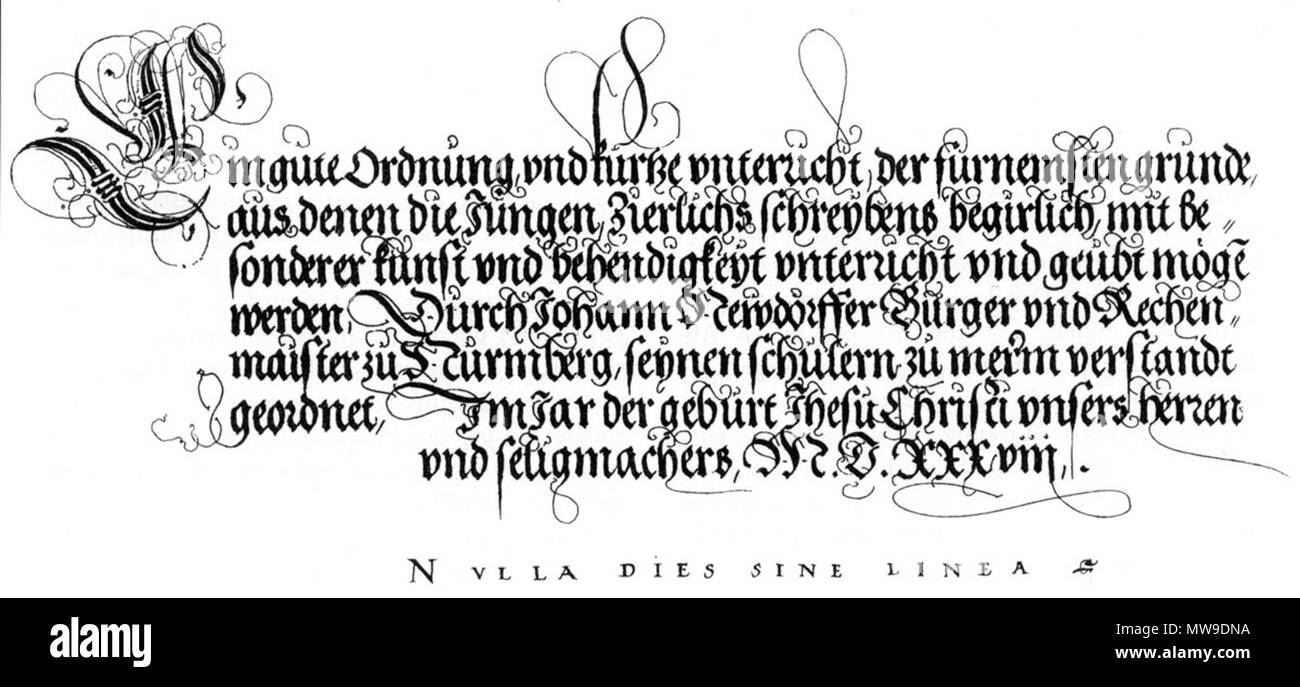 Ein gute Ordnung, vnd kurtze vnterricht, der furnemsten grunde,
aus denen die Jungen, Zierlichs schreybens begirlich, mit be〃
sonderer kunst vnd behendigkeyt vnterricht vnd geubt mogē
werden, Durch Johann Newdorffer Burger vnd Rechen〃
maister zu Nurmberg, seynen schulern zu merm verstandt
geordnet, Im Jar der geburt Jhesu Christi vnsers herren
vnd seligmachers, M. D. XXXviij,.
NVLLA DIES SINE LINEA
alamy
Image ID: MW9DNA
www.alamy.com